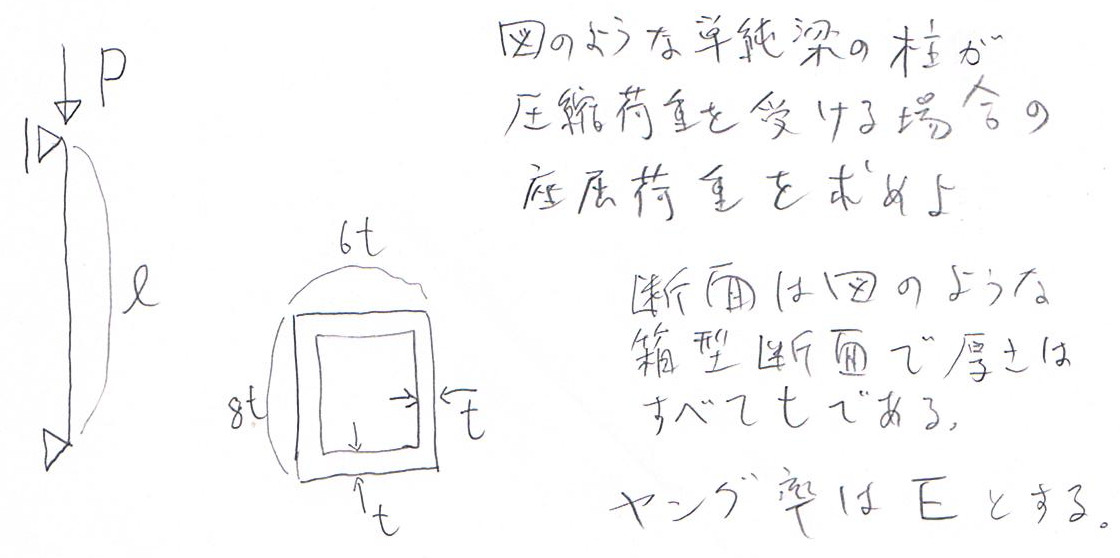 P
l
6t
8t
t
t
図のような単純梁の柱が
圧縮荷重を受ける場合の
座屈荷重を求めよ
断面は図のような
箱型断面で厚さは
すべてtである。
ヤング率はEとする。